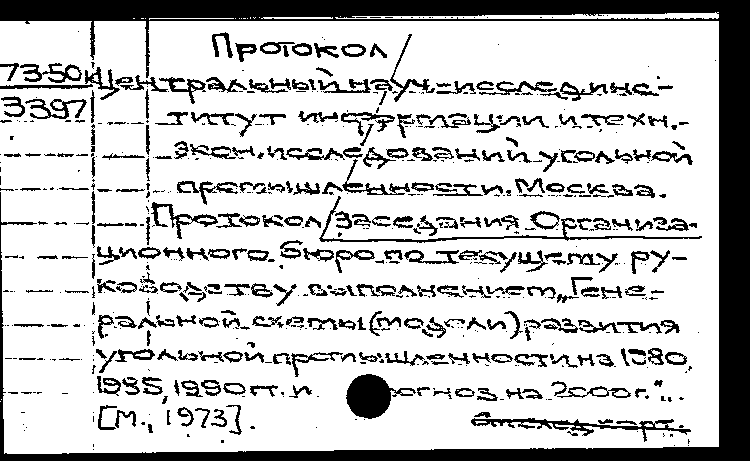 Протокол
73-50к Центральный науч.-исслед. инс-
3397 титут информации и техн.-
экон. исследований угольной
промышленности. Москва.
Протокол заседания Организа-
ционного бюро по текущему ру-
ководству выполнением „Гене-
ральной схемы (модели) развития
угольной промышленности на 1980,
1985, 1990 гг. и прогноз на 2000 г.“..
[М., 1973].
См. след. карт.